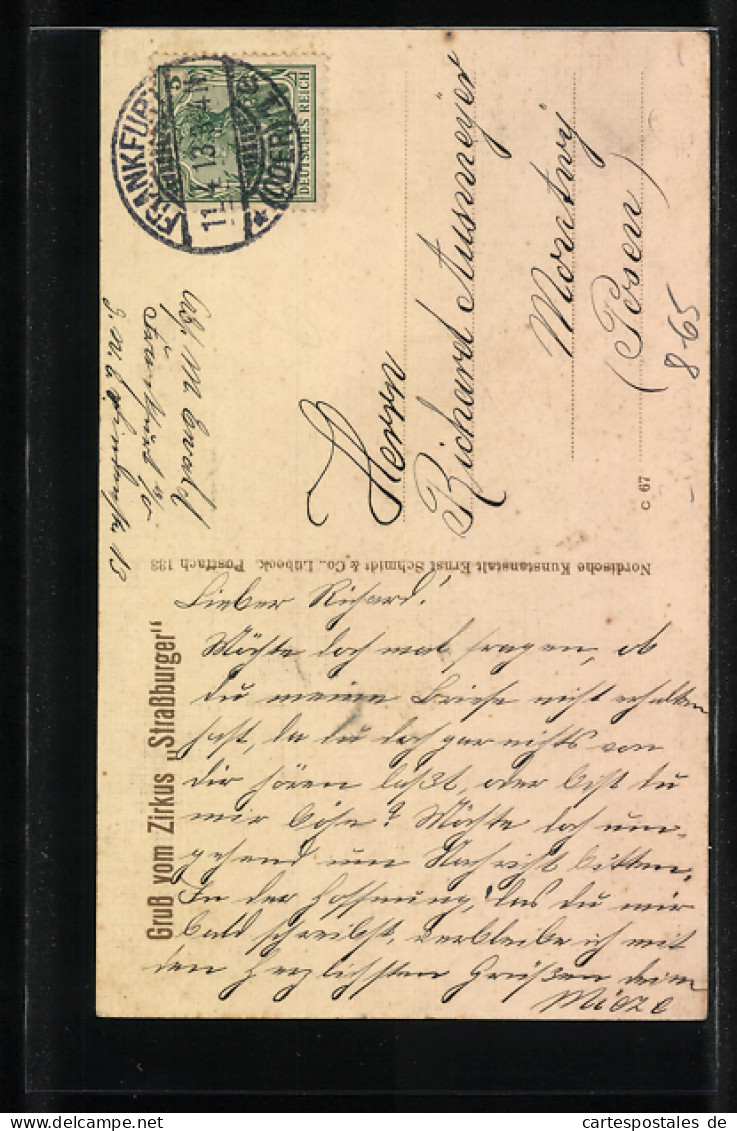 FRANKFURT
(ODER) 1
11.4.13.3-4N
DEUTSCHES REICH
Herrn
Richard Ausmeyer
Montwy
(Posen)
865
C 67
Abs. M. Ewald
Frankfurt a/o
13
Nordische Kunstanstalt Ernst Schmidt & Co., Lübeck. Postfach 133
Gruß vom Zirkus „Straßburger"
Lieber Richard!
Möchte doch mal fragen, ob
du meine Briefe nicht erhalten
hast, da du doch gar nichts von
dir hören läßt, oder bist du
mir böse? Möchte doch um-
gehend um Nachricht bitten.
In der Hoffnung, das du mir
bald schreibst, verbleibe ich mit
den herzlichsten Grüßen deine
Mieze
cartespostales de